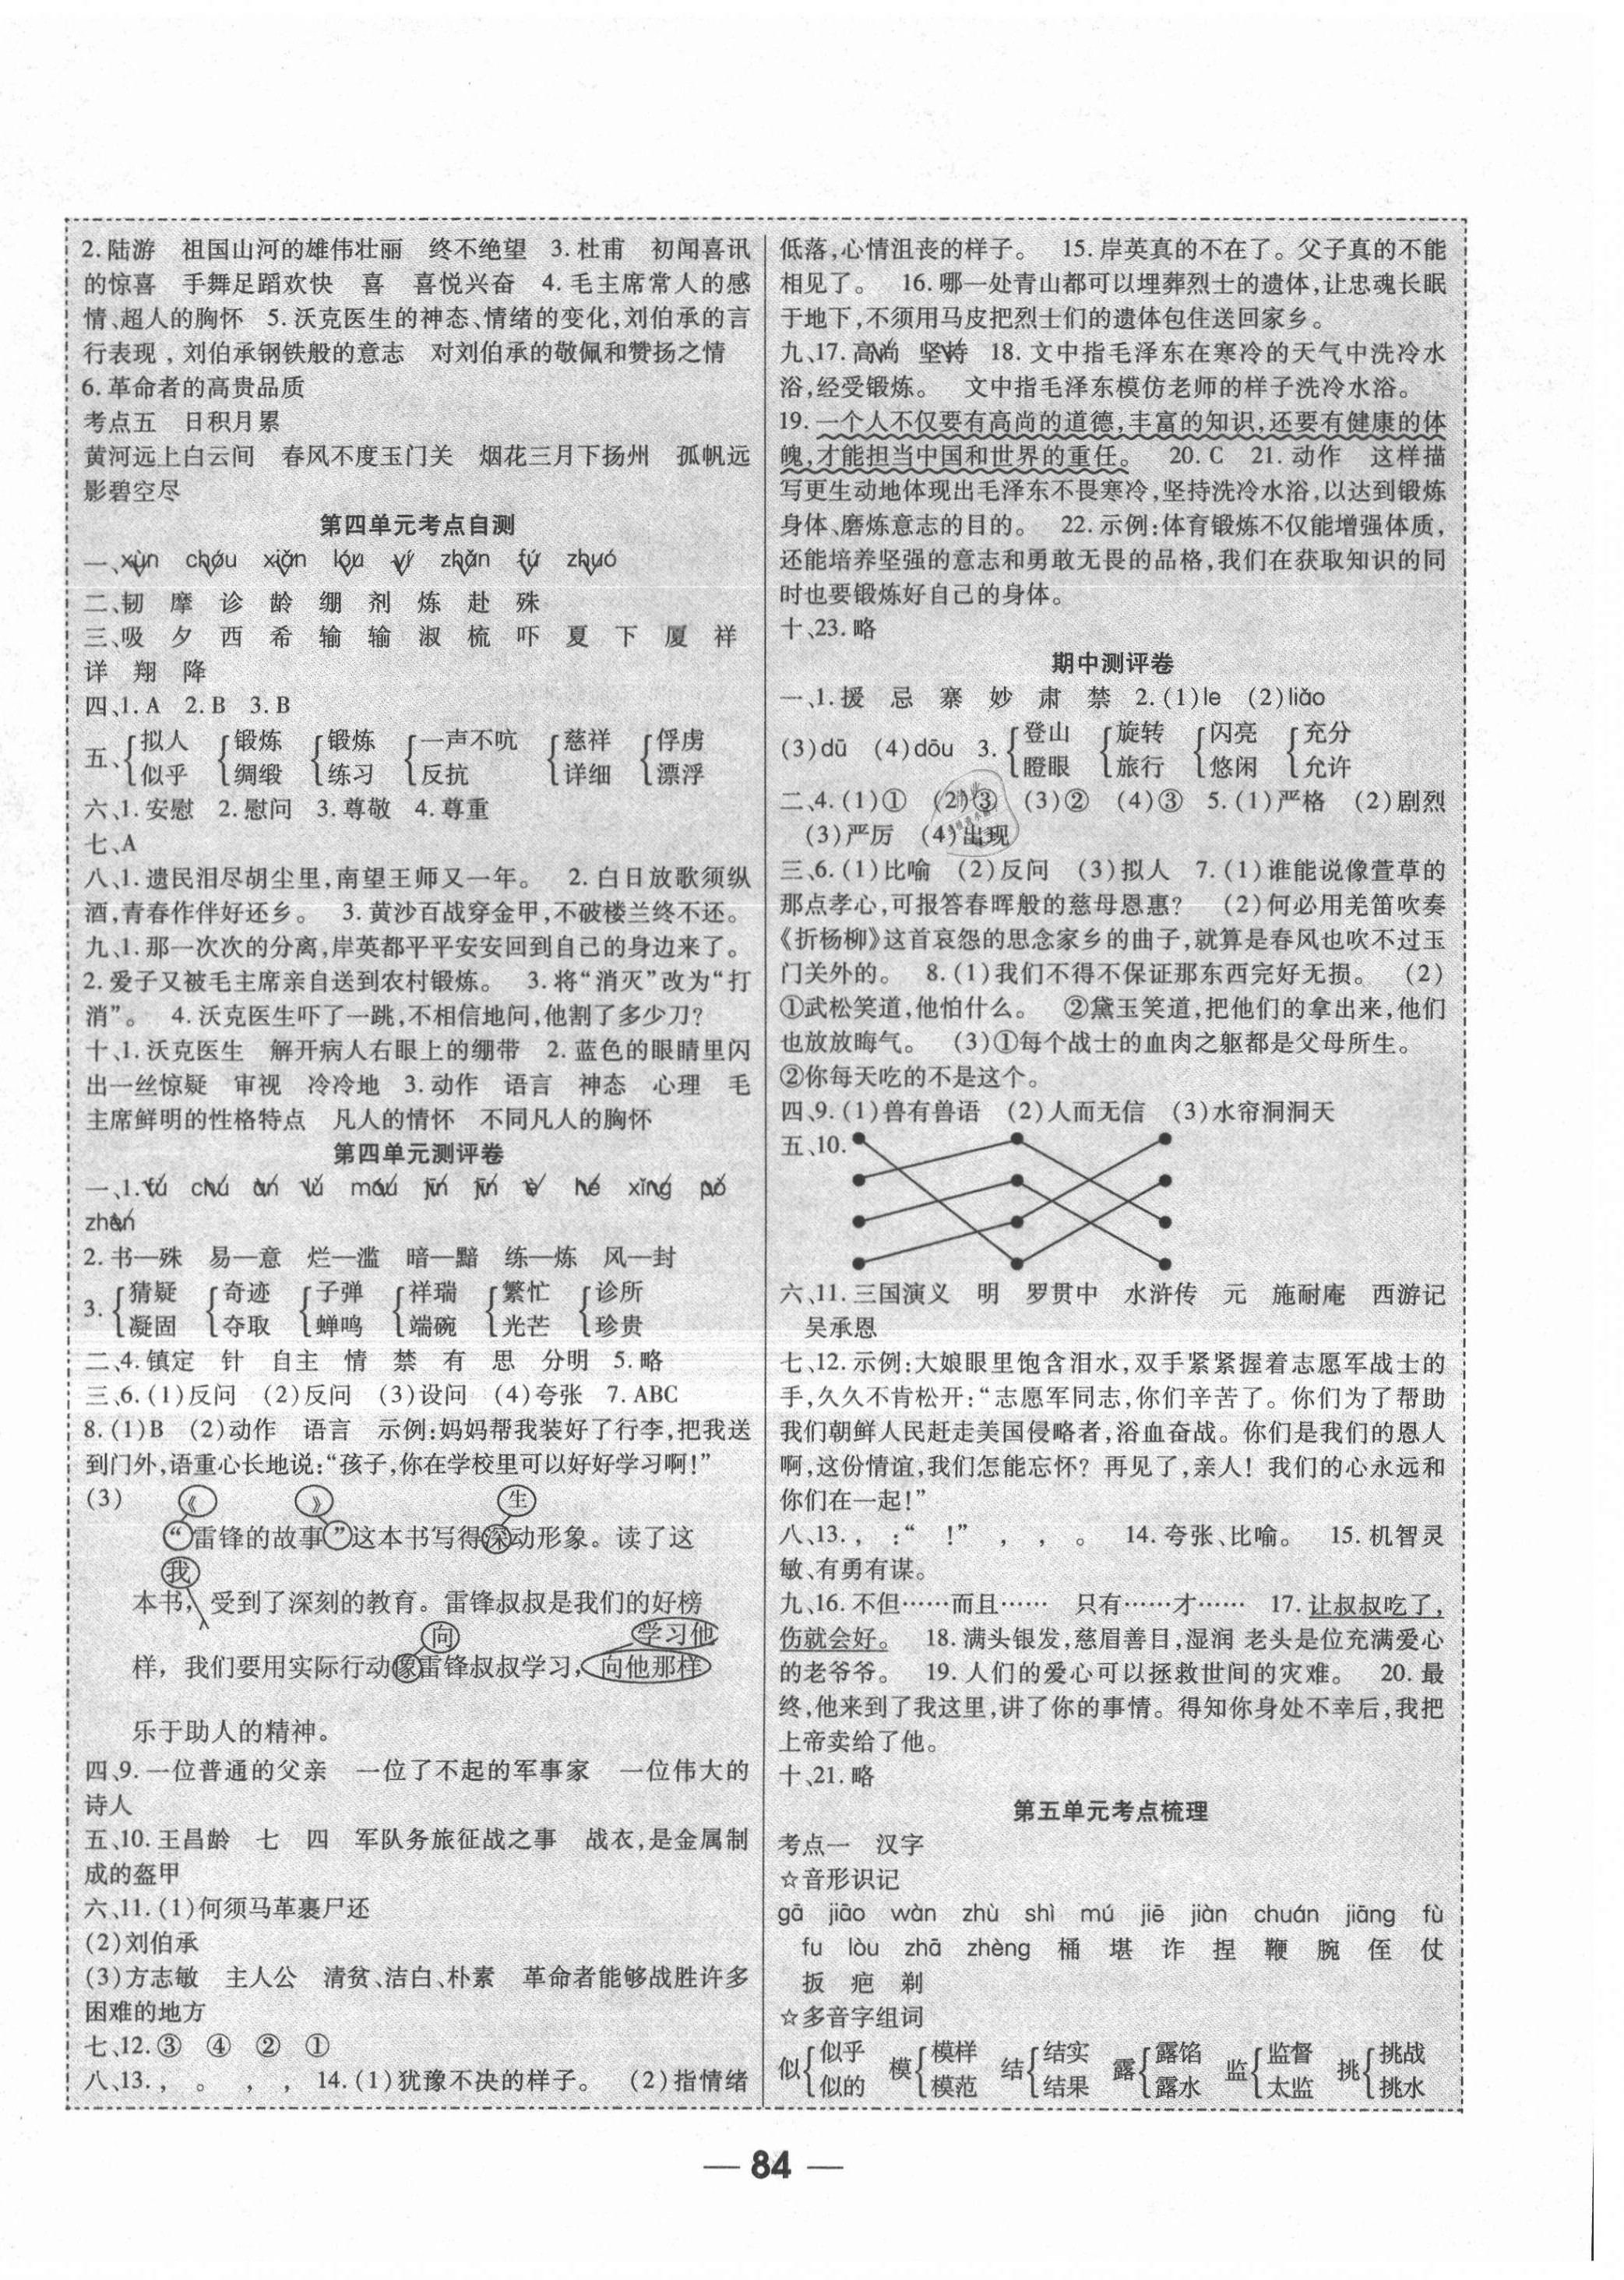 2.陆游　祖国山河的雄伟壮丽　终不绝望　3.杜甫　初闻喜讯
的惊喜　手舞足蹈欢快　喜　喜悦兴奋　4.毛主席常人的感
情、超人的胸怀　5.沃克医生的神态、情绪的变化,刘伯承的言
行表现，刘伯承钢铁般的意志　对刘伯承的敬佩和赞扬之情
6.革命者的高贵品质
考点五　日积月累
黄河远上白云间　春风不度玉门关　烟花三月下扬州　孤帆远
影碧空尽
第四单元考点自测
一、xùn　chóu　xiǎn　lóu　yí　zhǎn　fú　zhuó
二、韧　摩　诊　龄　绷　剂　炼　赴　殊
三、吸　夕　西　希　输　输　淑　梳　吓　夏　下　厦　祥
详　翔　降
四、1.A　2.B　3.B
五、{拟人 似乎　{锻炼 绸缎　{锻炼 练习　{一声不吭 反抗　{慈祥 详细　{俘虏 漂浮
六、1.安慰　2.慰问　3.尊敬　4.尊重
七、A
八、1.遗民泪尽胡尘里,南望王师又一年。　2.白日放歌须纵
酒,青春作伴好还乡。　3.黄沙百战穿金甲,不破楼兰终不还。
九、1.那一次次的分离,岸英都平平安安回到自己的身边来了。
2.爱子又被毛主席亲自送到农村锻炼。　3.将“消灭”改为“打
消”。　4.沃克医生吓了一跳,不相信地问,他割了多少刀?
十、1.沃克医生　解开病人右眼上的绷带　2.蓝色的眼睛里闪
出一丝惊疑　审视　冷冷地　3.动作　语言　神态　心理　毛
主席鲜明的性格特点　凡人的情怀　不同凡人的胸怀
第四单元测评卷
2.书—殊　易—意　烂—滥　暗—黯　练—炼　风—封
3.{猜疑 凝固　{奇迹 夺取　{子弹 蝉鸣　{祥瑞 端碗　{繁忙 光芒　{诊所 珍贵
二、4.镇定　针　自主　情　禁　有　思　分明　5.略
三、6.(1)反问　(2)反问　(3)设问　(4)夸张　7.ABC
8.(1)B　(2)动作　语言　示例:妈妈帮我装好了行李,把我送
到门外,语重心长地说:“孩子,你在学校里可以好好学习啊!”
(3)　《　》　生
“雷锋的故事”这本书写得深动形象。读了这
我
本书，受到了深刻的教育。雷锋叔叔是我们的好榜
向　学习他
样，我们要用实际行动像雷锋叔叔学习，向他那样
乐于助人的精神。
四、9.一位普通的父亲　一位了不起的军事家　一位伟大的
诗人
五、10.王昌龄　七　四　军队务旅征战之事　战衣,是金属制
成的盔甲
六、11.(1)何须马革裹尸还
(2)刘伯承
(3)方志敏　主人公　清贫、洁白、朴素　革命者能够战胜许多
困难的地方
七、12.③　④　②　①
八、13.，　。　，　，　14.(1)犹豫不决的样子。　(2)指情绪
低落,心情沮丧的样子。　15.岸英真的不在了。父子真的不能
相见了。　16.哪一处青山都可以埋葬烈士的遗体,让忠魂长眠
于地下,不须用马皮把烈士们的遗体包住送回家乡。
九、17.高尚　坚持　18.文中指毛泽东在寒冷的天气中洗冷水
浴,经受锻炼。　文中指毛泽东模仿老师的样子洗冷水浴。
19.一个人不仅要有高尚的道德,丰富的知识,还要有健康的体
魄,才能担当中国和世界的重任。　20.C　21.动作　这样描
写更生动地体现出毛泽东不畏寒冷,坚持洗冷水浴,以达到锻炼
身体、磨炼意志的目的。　22.示例:体育锻炼不仅能增强体质,
还能培养坚强的意志和勇敢无畏的品格,我们在获取知识的同
时也要锻炼好自己的身体。
十、23.略
期中测评卷
一、1.援　忌　寨　妙　肃　禁　2.(1)le　(2)liǎo
(3)dū　(4)dōu　3.{登山 瞪眼　{旋转 旅行　{闪亮 悠闲　{充分 允许
二、4.(1)①　(2)③　(3)②　(4)③　5.(1)严格　(2)剧烈
(3)严厉　(4)出现
三、6.(1)比喻　(2)反问　(3)拟人　7.(1)谁能说像萱草的
那点孝心,可报答春晖般的慈母恩惠?　(2)何必用羌笛吹奏
《折杨柳》这首哀怨的思念家乡的曲子,就算是春风也吹不过玉
门关外的。　8.(1)我们不得不保证那东西完好无损。　(2)
①武松笑道,他怕什么。　②黛玉笑道,把他们的拿出来,他们
也放放晦气。　(3)①每个战士的血肉之躯都是父母所生。
②你每天吃的不是这个。
四、9.(1)兽有兽语　(2)人而无信　(3)水帘洞洞天
五、10.
六、11.三国演义　明　罗贯中　水浒传　元　施耐庵　西游记
吴承恩
七、12.示例:大娘眼里饱含泪水,双手紧紧握着志愿军战士的
手,久久不肯松开:“志愿军同志,你们辛苦了。你们为了帮助
我们朝鲜人民赶走美国侵略者,浴血奋战。你们是我们的恩人
啊,这份情谊,我们怎能忘怀?再见了,亲人!我们的心永远和
你们在一起!”
八、13.，　:“　!”　，　，　。　14.夸张、比喻。　15.机智灵
敏、有勇有谋。
九、16.不但……而且……　只有……才……　17.让叔叔吃了,
伤就会好。　18.满头银发,慈眉善目,湿润 老头是位充满爱心
的老爷爷。　19.人们的爱心可以拯救世间的灾难。　20.最
终,他来到了我这里,讲了你的事情。得知你身处不幸后,我把
上帝卖给了他。
十、21.略
第五单元考点梳理
考点一　汉字
☆音形识记
gā　jiāo　wàn　zhù　shì　mú　jiē　jiàn　chuán　jiāng　fù
fu　lòu　zhā　zhèng　桶　堪　诈　捏　鞭　腕　侄　仗
扳　疤　剃
☆多音字组词
似{似乎 似的　模{模样 模范　结{结实 结果　露{露馅 露水　监{监督 太监　挑{挑战 挑水
— 84 —